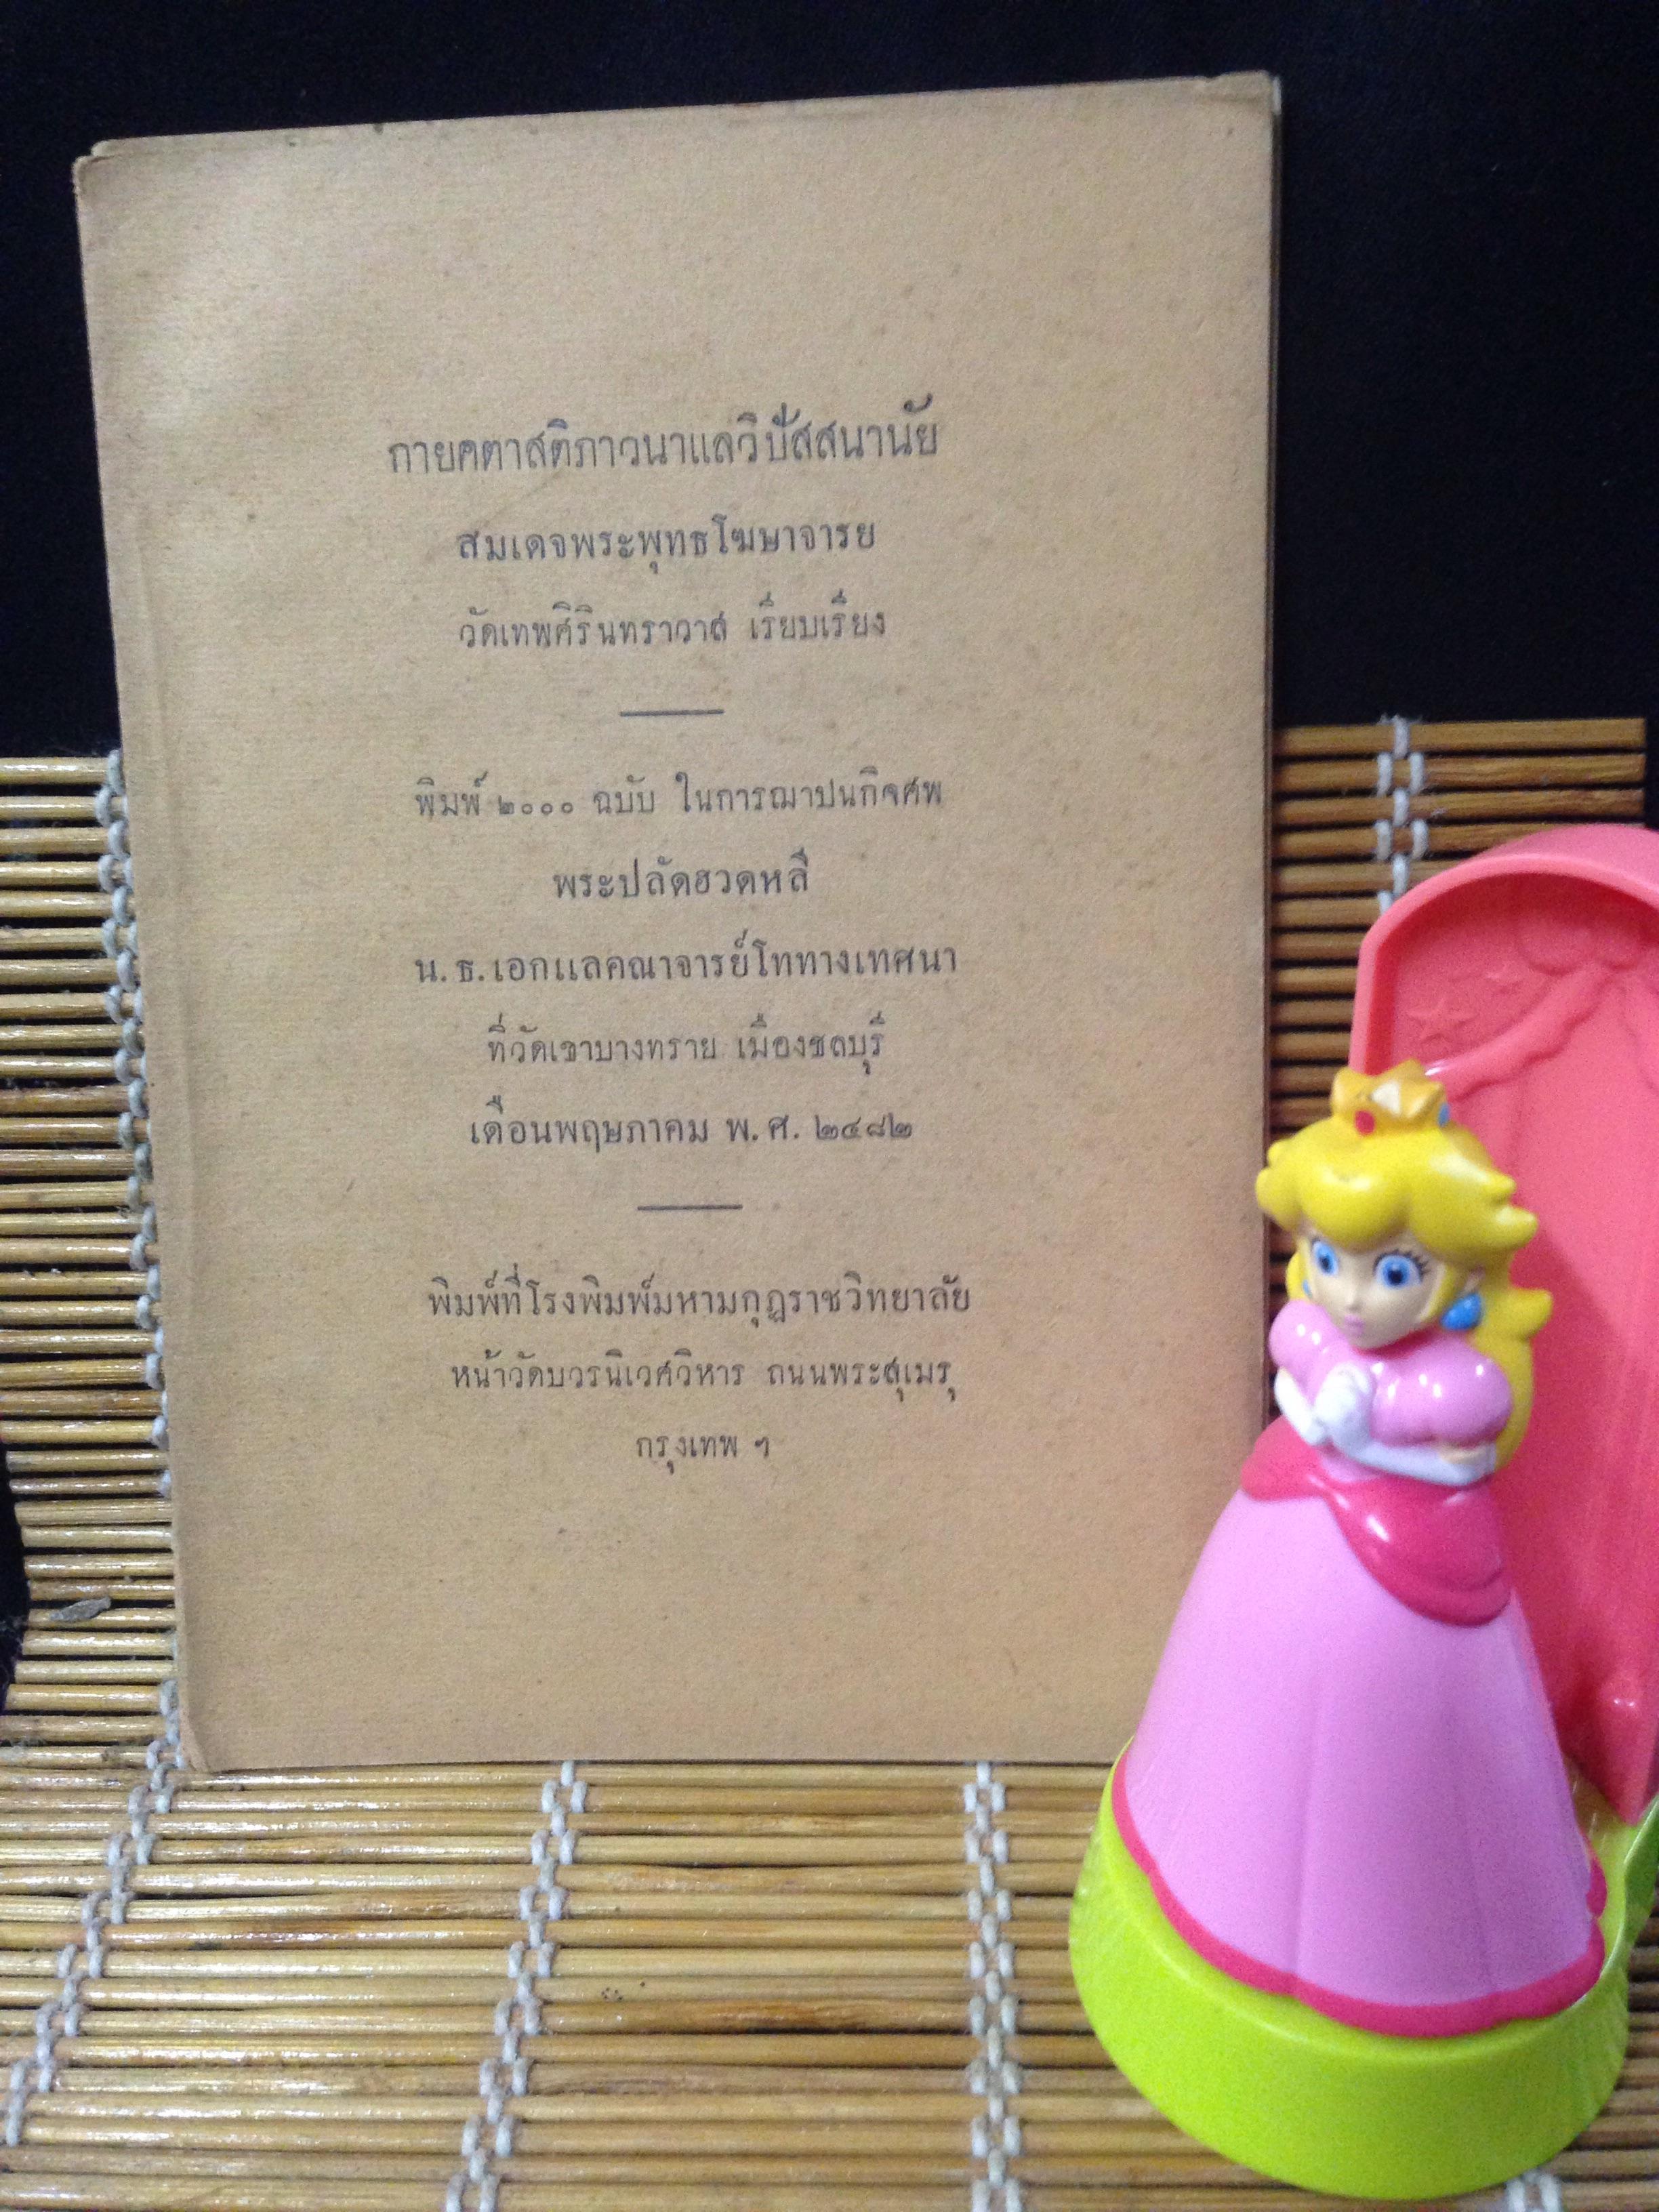 กายคตาสติภาวนาแลวิปัสสนานัย
สมเดจพระพุทธโฆษาจารย
วัดเทพศิรินทราวาส เรียบเรียง
พิมพ์ ๒๐๐๐ ฉบับ ในการฌาปนกิจศพ
พระปลัดฮวดหลี
น.ธ.เอกแลคณาจารย์โททางเทศนา
ที่วัดเขาบางทราย เมืองชลบุรี
เดือนพฤษภาคม พ.ศ. ๒๔๘๒
พิมพ์ที่โรงพิมพ์มหามกุฏราชวิทยาลัย
หน้าวัดบวรนิเวศวิหาร ถนนพระสุเมรุ
กรุงเทพ ฯ